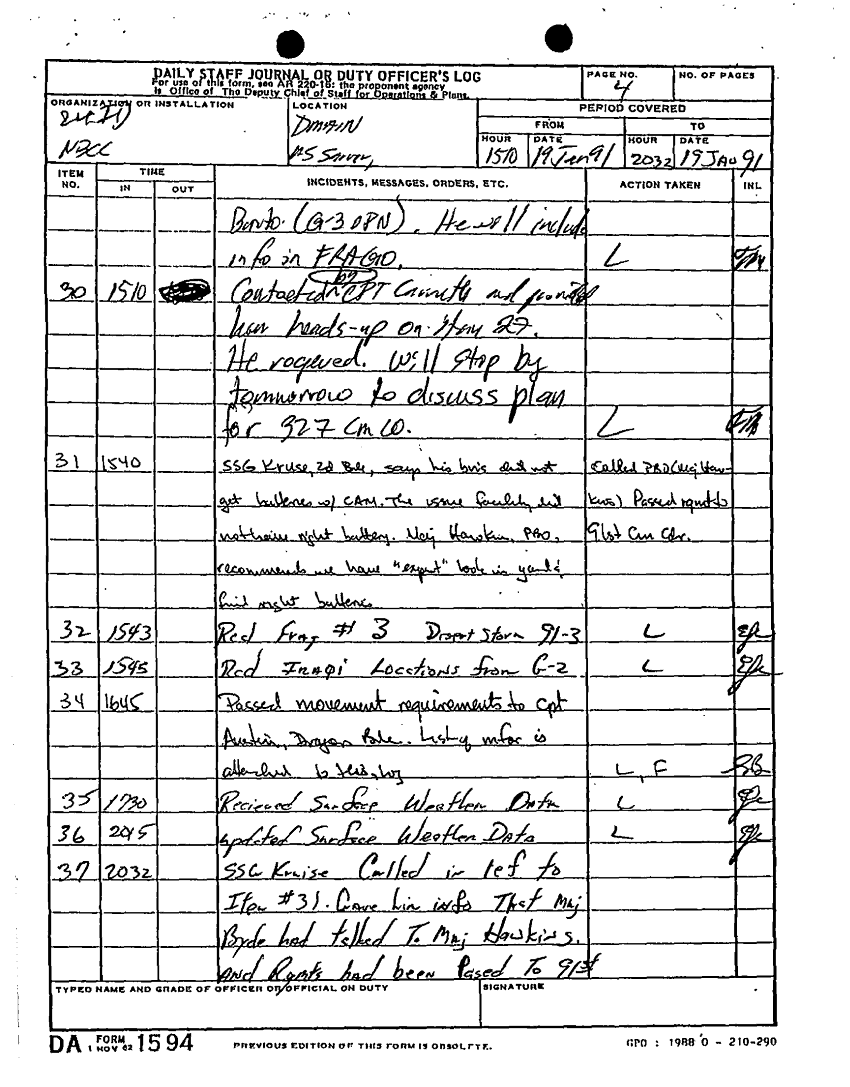 DAILY STAFF JOURNAL OR DUTY OFFICER'S LOG
For use of this form, see AR 220-15: the proponent agency
is Office of The Deputy Chief of Staff for Operations & Plans.
PAGE NO.
4
NO. OF PAGES
ORGANIZATION OR INSTALLATION
NBCC
LOCATION
DMAIN
PERIOD COVERED
FROM
TO
HOUR
1510
DATE
19 Jan 91
HOUR
2032
DATE
19 JAN 91
ITEM NO.
TIME
IN
OUT
INCIDENTS, MESSAGES, ORDERS, ETC.
ACTION TAKEN
INL
(G-3 OPN). He will include
info in FRAGO. L
30 1510 Contacted CPT and provided
him heads-up on
He rogered. Will stop by
tomorrow to discuss plan
for 327 Cm Co. L
31 1540 SSG Kruse, 2d Bde, says his did not Called
get batteries w/ CAM. The issue facility did Passed to
not have right battery. Maj Hawkins, 91st Cm
recommends we have "expert" look in yard &
find right batteries
32 1543 Rcd Frag # 3 Desert Storm 91-3 L
33 1545 Rcd IRAQI Locations from G-2 L
34 1645 Passed movement requirements to Cpt
Austin, Dragon Bde. List of is
attached to this log L, F
35 1730 Recieved Surface Weather Data L
36 2015 updated Surface Weather Data L
37 2032 SSG Kruise Called in ref to
Item #31. Gave him info That Maj
had talked To Maj Hawkins.
And Rqmts had been Passed To 91st
TYPED NAME AND GRADE OF OFFICER OR OFFICIAL ON DUTY
SIGNATURE
DA FORM 1594
1 NOV 62
PREVIOUS EDITION OF THIS FORM IS OBSOLETE.
GPO : 1988 O - 210-290